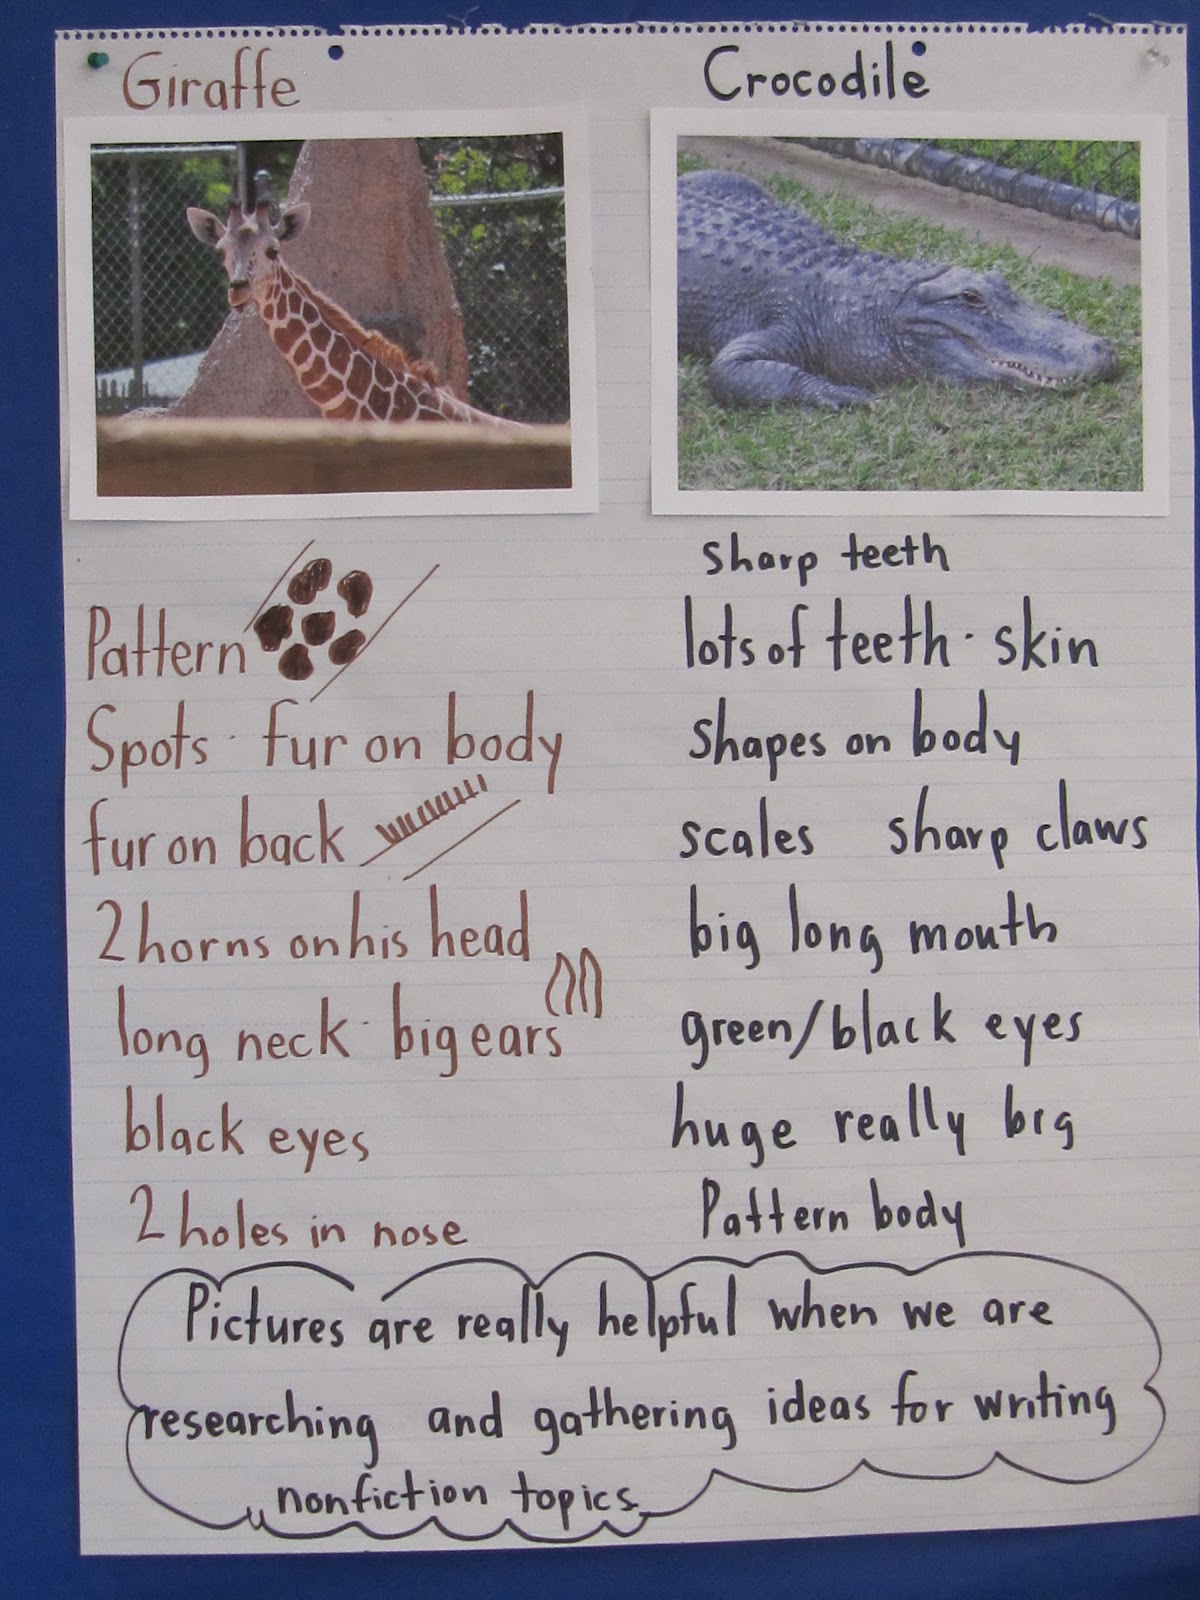 Giraffe
Crocodile
Pattern
Spots · fur on body
fur on back
2 horns on his head
long neck · big ears
black eyes
2 holes in nose
sharp teeth
lots of teeth · skin
shapes on body
scales sharp claws
big long mouth
green/black eyes
huge really big
Pattern body
Pictures are really helpful when we are
researching and gathering ideas for writing
nonfiction topics.